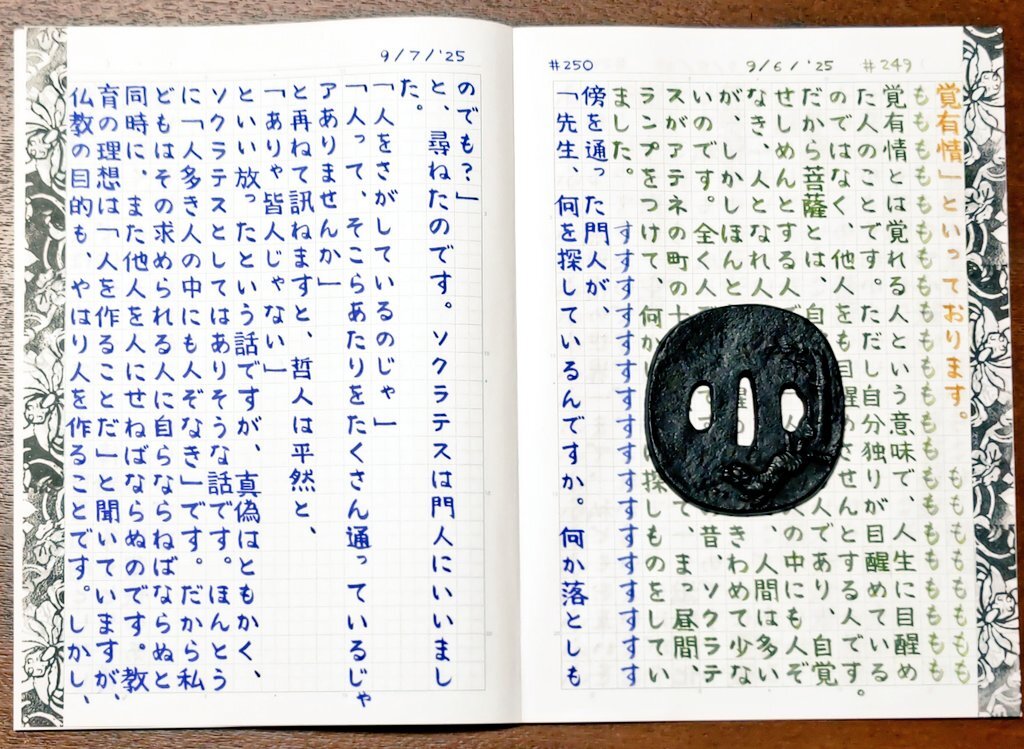 #250 9/6/'25 #249
覚有情」といっております。 もももももももも
もももももももももももももももももももももも
覚有情とは覚れる人という意味で、人生に目醒め
た人のことです。ただし自分独りが目醒めている
のではなく、他人をも目醒めさせんとする人です。
だから菩薩とは、自 人であり、自覚
せしめんとする人 人の中にも人ぞ
なき、人となれ人 人間は多い
が、しかしほんと きわめて少な
いのです。全く人 昔、ソクラテ
スがアテネの町の十 て、まっ昼間、
ランプをつけて、何か 探しものをしてい
ました。 すすすすすすすすすすすすすすすすす
傍を通った門人が、
「先生、何を探しているんですか。何か落としも
9/7/'25
のでも?」
と、尋ねたのです。ソクラテスは門人にいいまし
た。
「人をさがしているのじゃ」
「人って、そこらあたりをたくさん通っているじゃ
アありませんか」
と再ねて訊ねますと、哲人は平然と、
「ありゃ皆人じゃない」
といい放ったという話ですが、真偽はともかく、
ソクラテスとしてはありそうな話です。ほんとう
に「人多き人の中にも人ぞなき」です。だから私
どもはその求められる人に自らならねばならぬと
同時に、また他人を人にせねばならぬのです。教
育の理想は「人を作ることだ」と聞いていますが、
仏教の目的も、やはり人を作ることです。しかし、